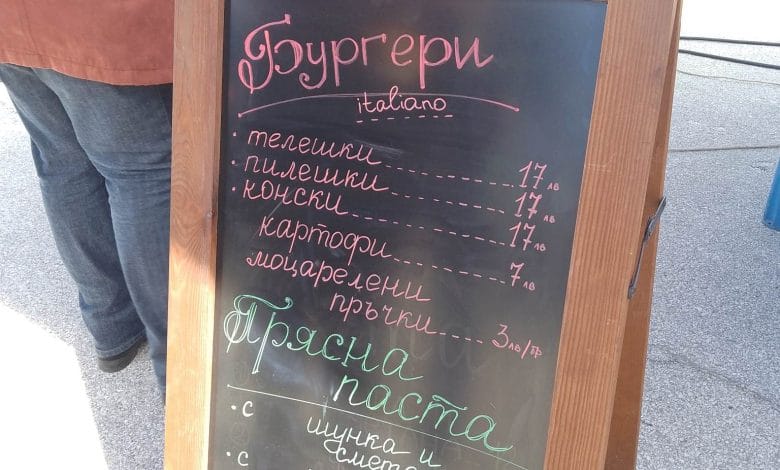 Бургери
italiano
· телешки 17лв
· пилешки 17лв
· конски 17лв
картофи 7лв
моцарелени
пръчки 3лв/бр
Прясна
паста
· с шунка и
смета
· с